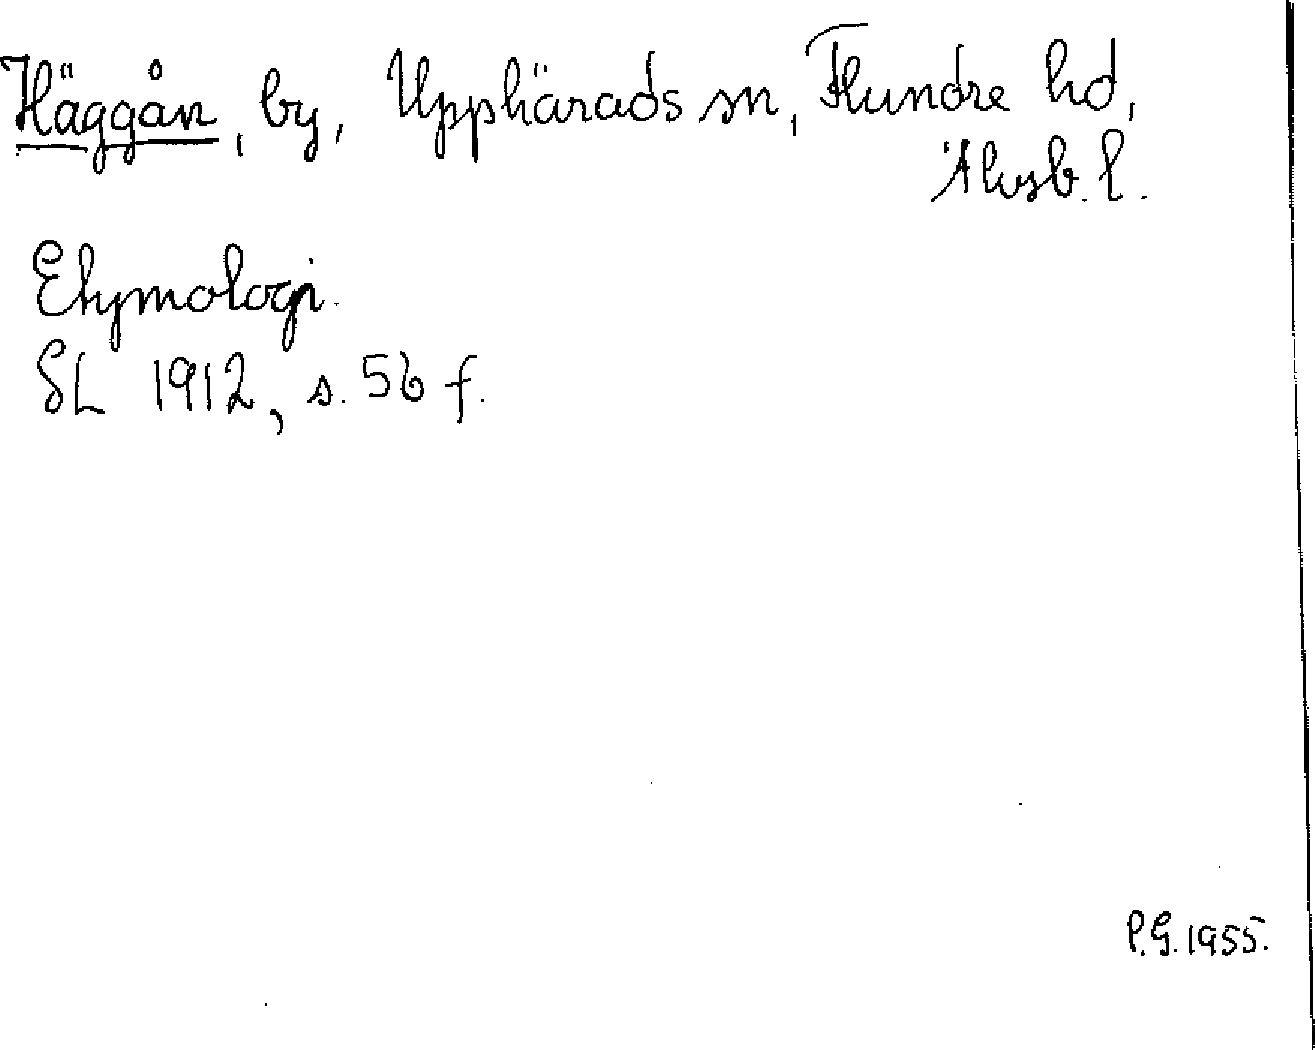 Häggån, by, Upphärads sn, Flundre hd,
Älvsb. l.
Etymologi.
SL 1912, s. 56 f.
P.G. 1955.